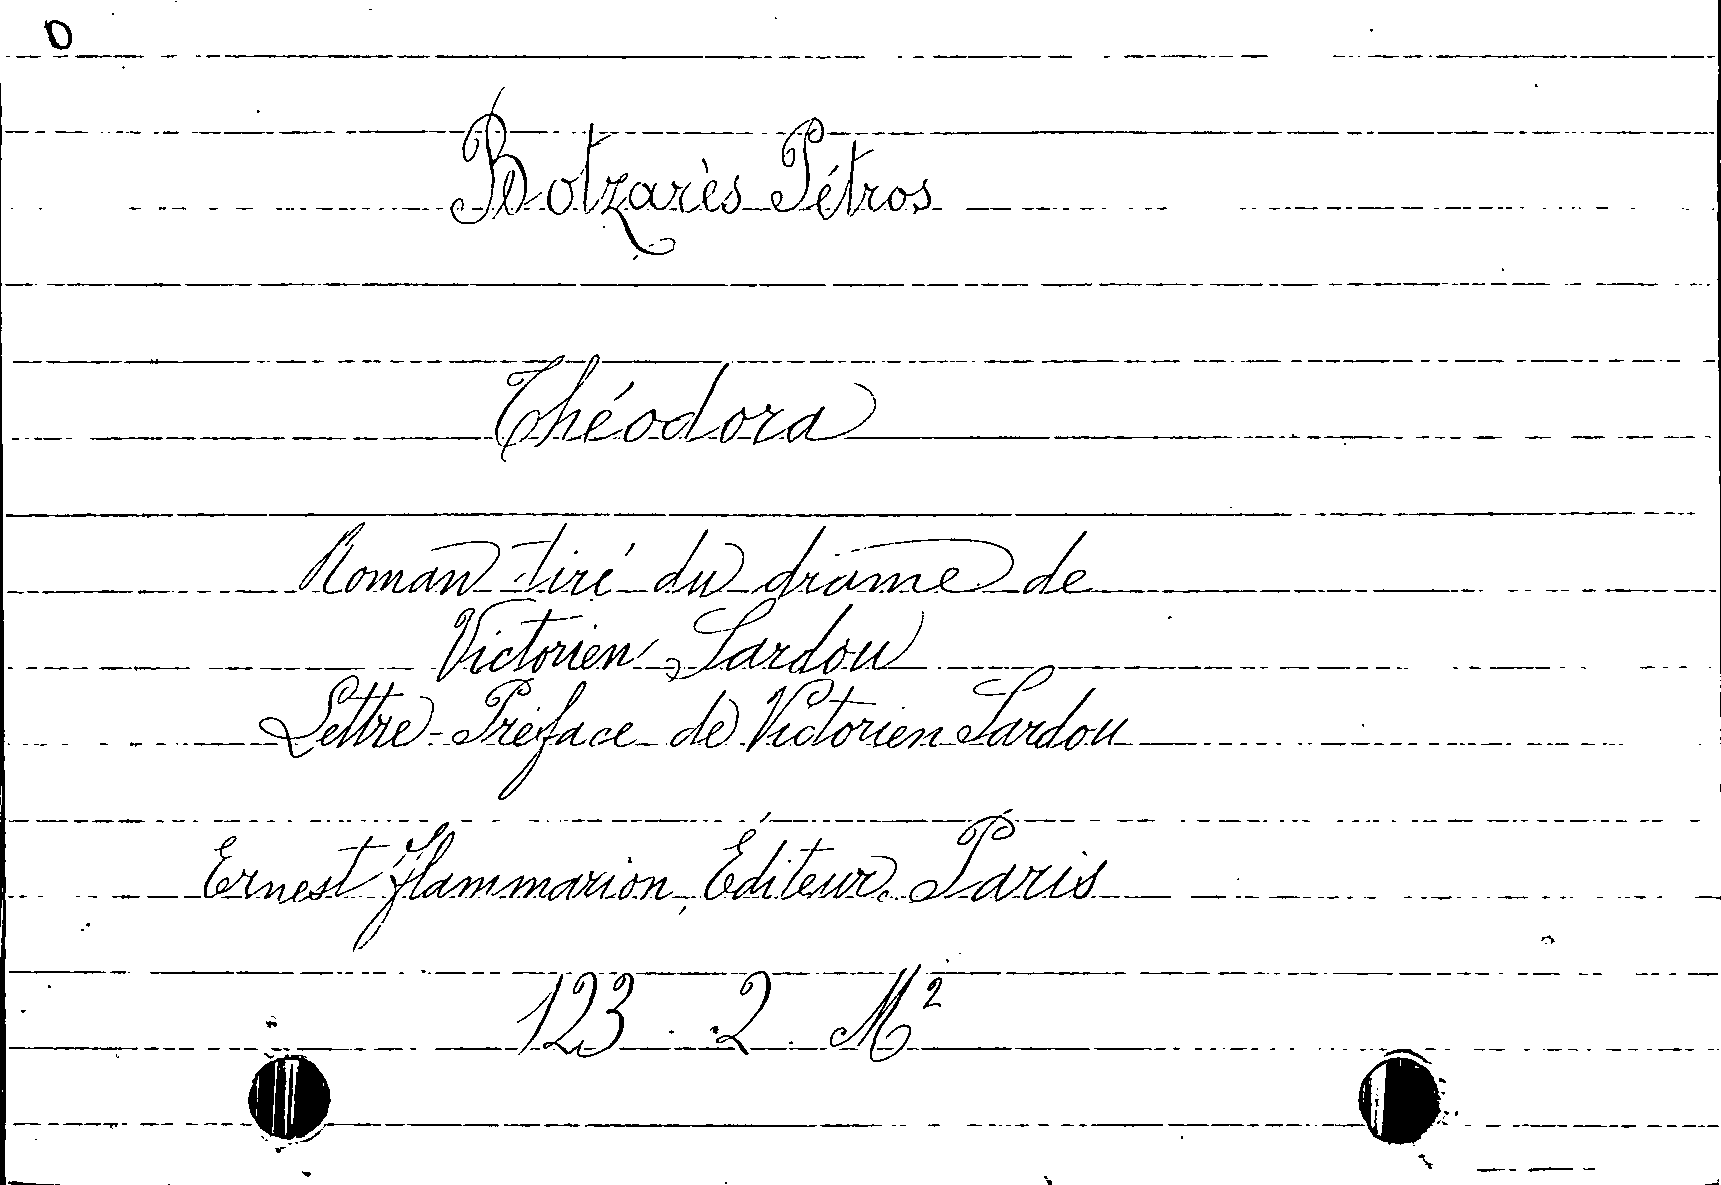 0
Botzarès Pétros
Théodora
Roman tiré du drame de
Victorien Sardou
Lettre-Préface de Victorien Sardou
Ernest Flammarion, Éditeur, Paris
123 2 M²